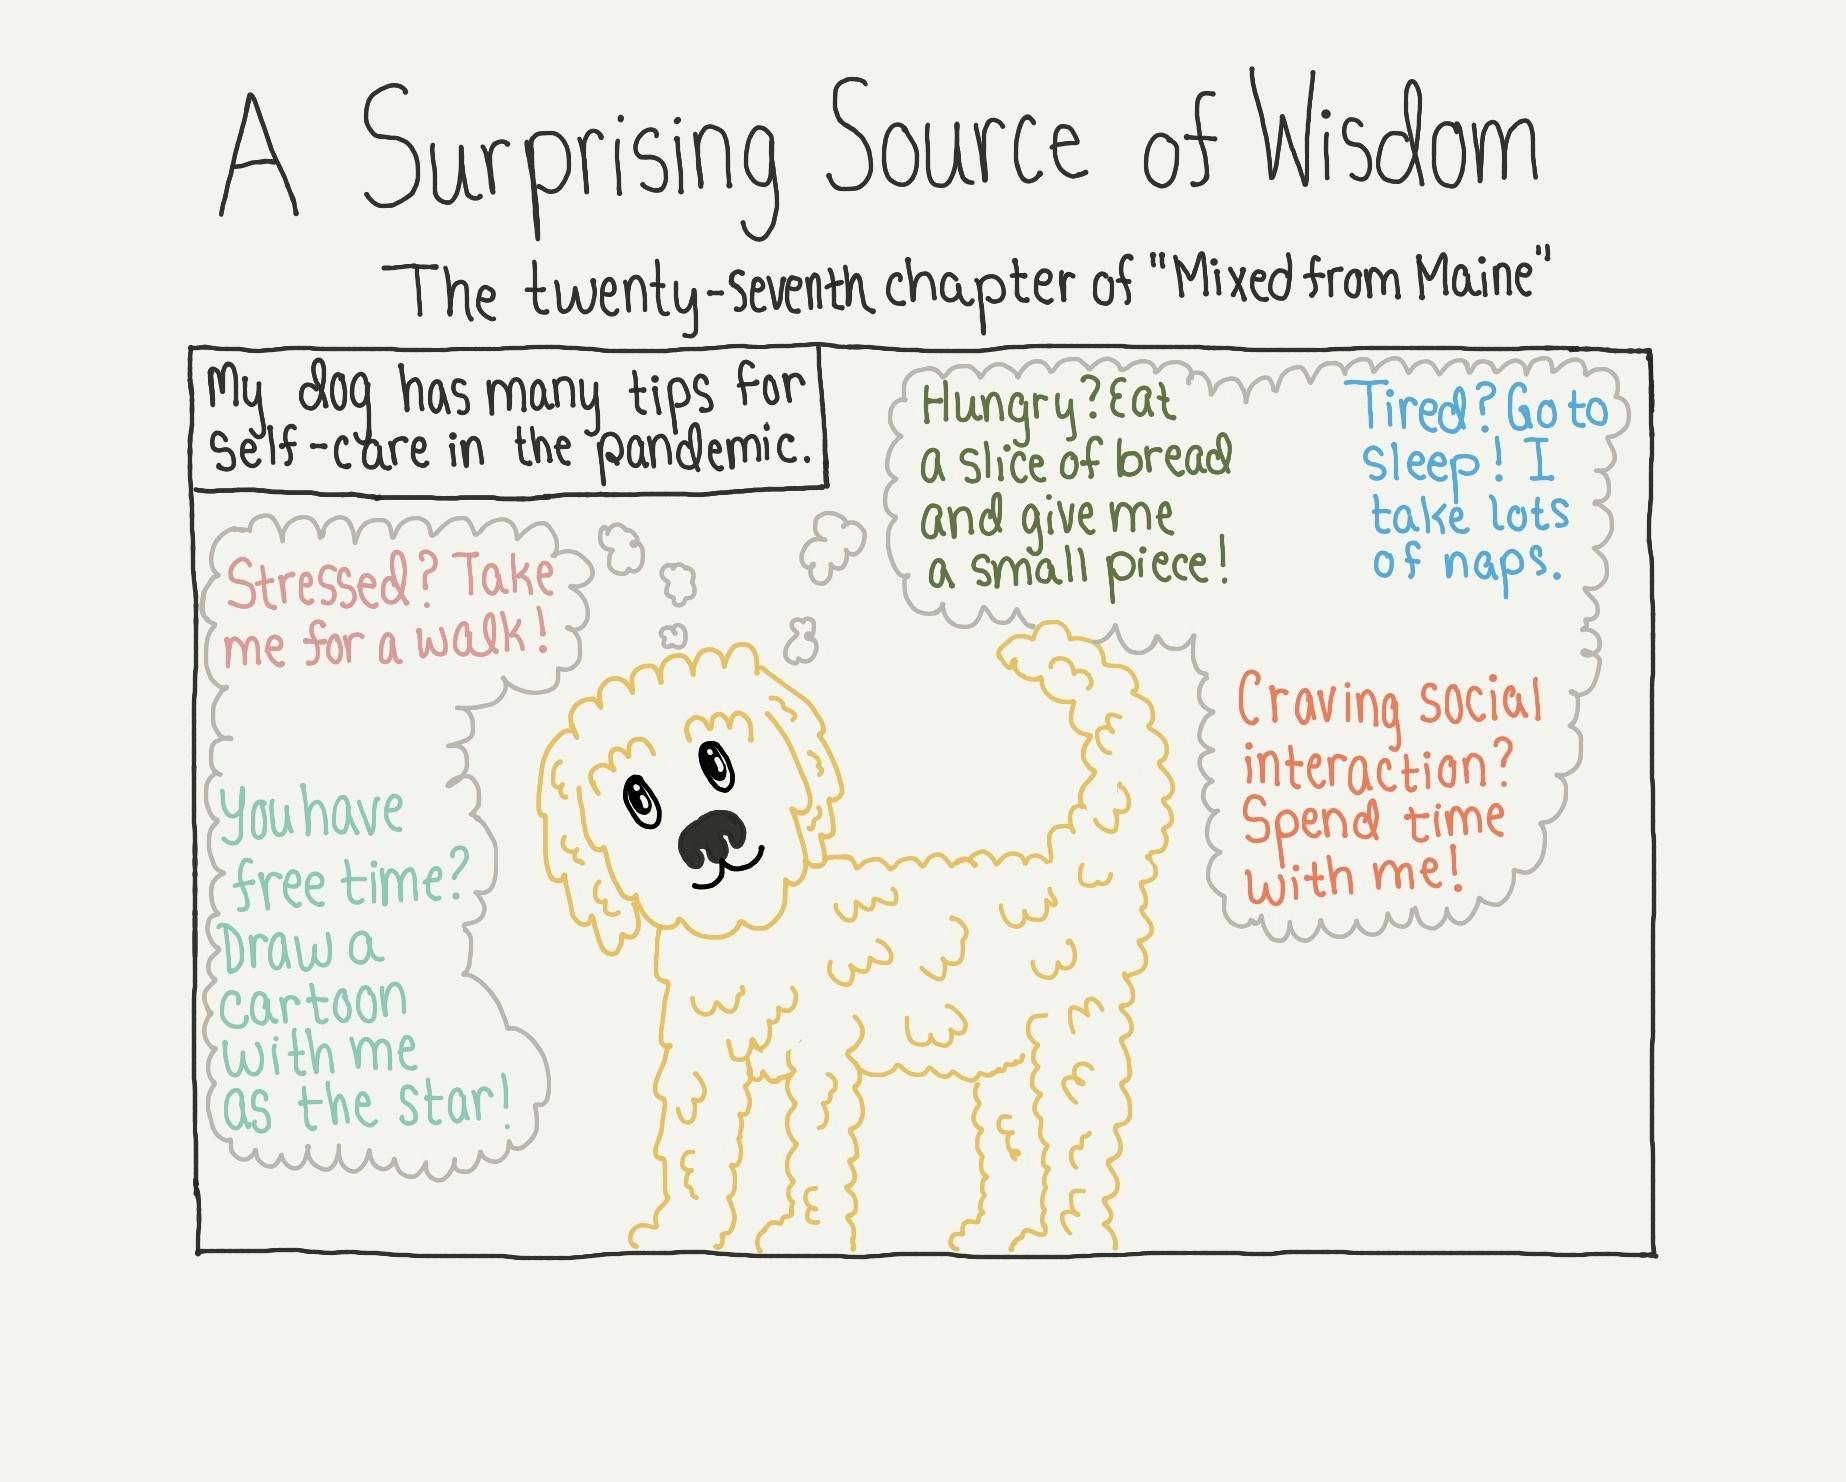 A Surprising Source of Wisdom
The twenty-seventh chapter of "Mixed from Maine"
My dog has many tips for
self-care in the pandemic.
Stressed? Take
me for a walk!
You have
free time?
Draw a
cartoon
with me
as the star!
Hungry? Eat
a slice of bread
and give me
a small piece!
Tired? Go to
sleep! I
take lots
of naps.
Craving social
interaction?
Spend time
with me!